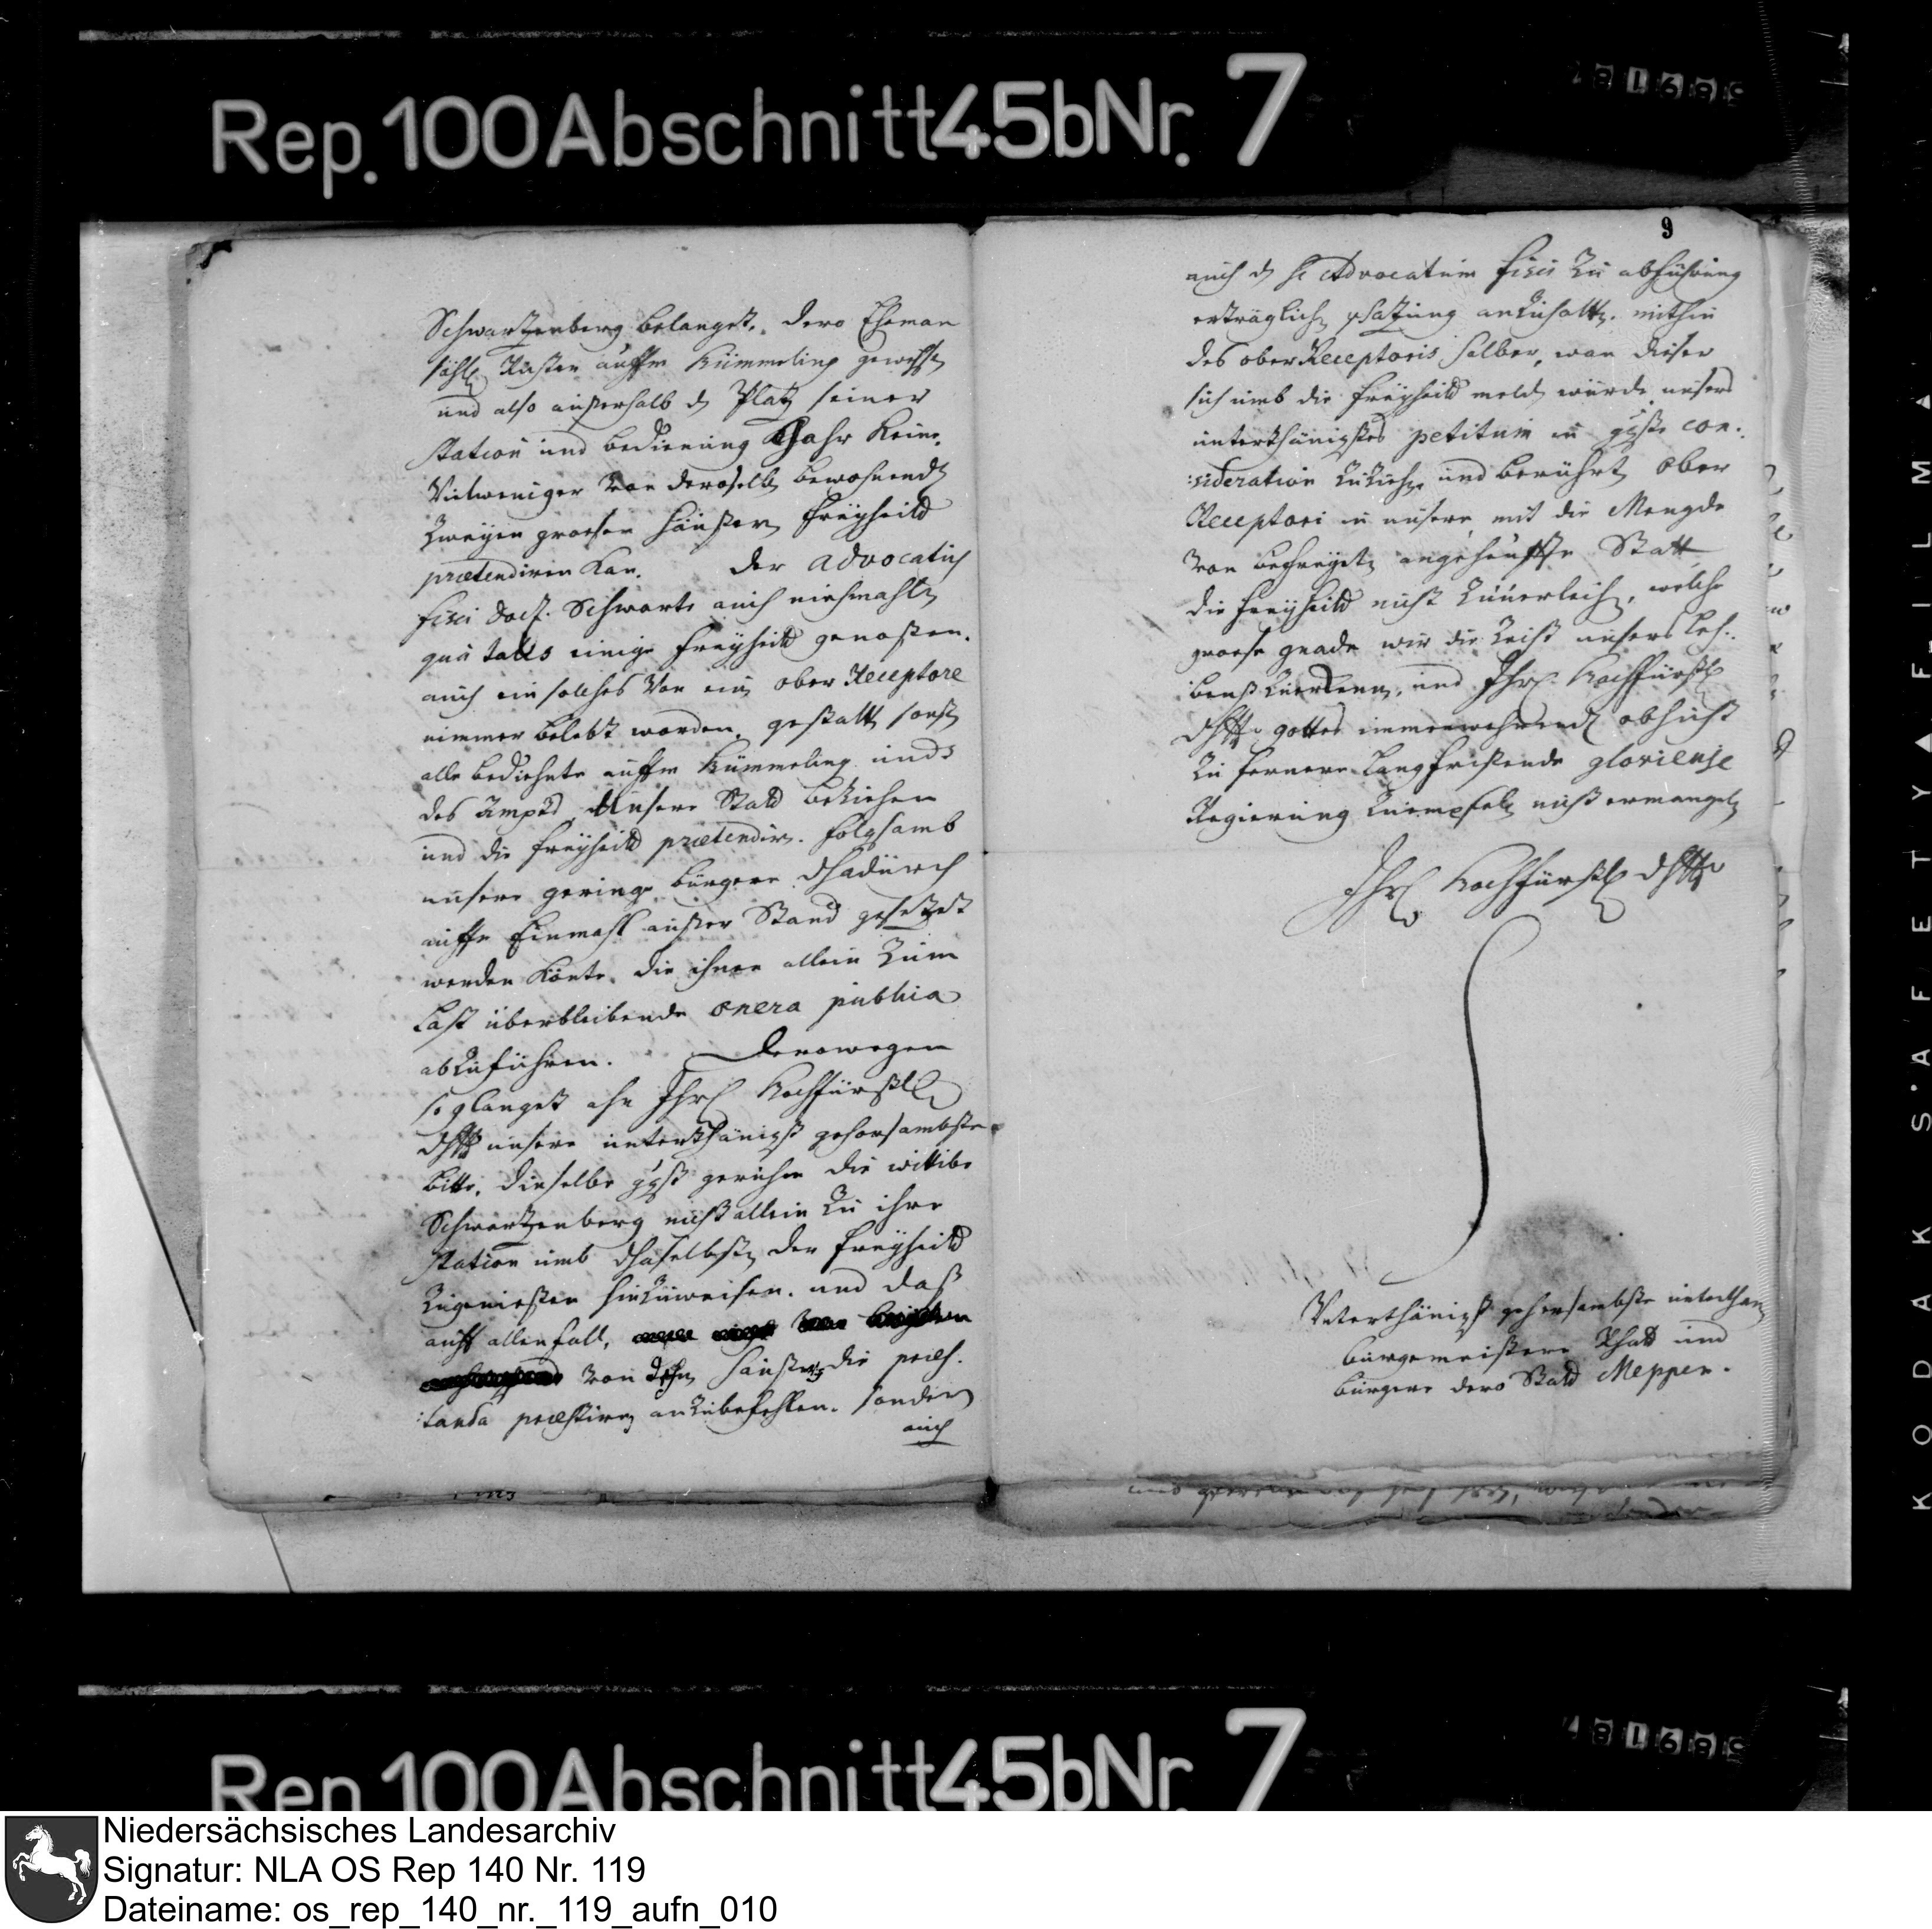 Rep. 100 Abschnitt 45b Nr. 7
9
Schwartzenberg belanget, dero Eheman
auffm Kümmeling
und also außerhalb d Platz seiner
station und bedienung Jahr keine,
Vielweniger von deroselb bewohnend
zweyen großen Häußer freyheitd
prætendiren kan. der advocatus
fisci doct. Schwarte auch niehmahls
qua talis einige freyheitd genoßen,
auch ein solches von ein ober Receptore
nimmer belebt worden, gestalt sonst
alle bediehnte auffm Hümmeling und
des Ampts unsere Stadt beziehen
und die freyheitd prætendir. folgsamb
unsere geringe bürgere dhadurch
auff Einmahl außer Stand gesetzet
werden könte, die ihnen allein zum
Last überbleibende onera publica
abzuführen. Derowegen
so glanget ahn Ihre Hochfürstl
Dhltt unsere unterthänigst gehorsambste
bitte, dieselbe ggst geruhen die wittibe
Schwartzenberg nicht allein zu ihre
station umb dhaselbst der freyheitd
zugenießen hinzuweisen, und daß
auff allenfall,
von dehn häußer die præs-
:tanda præstiren anzubefehlen, sondern
auch
auch d H Advocatum fisci zu abführung
erträglich schatzung anzuhalt, mithin
des ober Receptoris selber, wan dieser
sich umb die freyheitd meld würde unsers
unterthänigstes petitum in ggste con-
:sideration zuziehen und berührt ober
Receptori in unsere mit die Mengde
von befreyet angehäuffte Statt
die freyheitd nicht zuverleih, welche
große gnade wir die Zeit unsers leh-
benß zuerkenn, und Ihre Hochfürstl
Dhltt gottes immerwehrend obhuht
zu fernere langfristende glorieuse
Regierung zuempfehl nicht ermangel
Ihre Hochfürstl Dhltt
Unterthänigst gehorsambste unterthan
bürgemeistere Rhatt und
bürgere dero Stadt Meppen.
KODAK SAFETY FILM
Rep. 100 Abschnitt 45b Nr. 7
Niedersächsisches Landesarchiv
Signatur: NLA OS Rep 140 Nr. 119
Dateiname: os_rep_140_nr._119_aufn_010